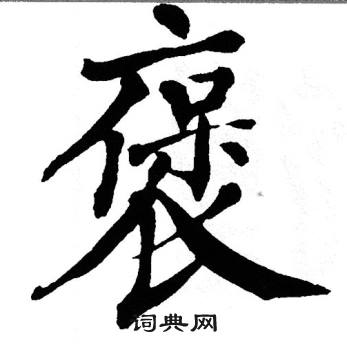 褒
词典网